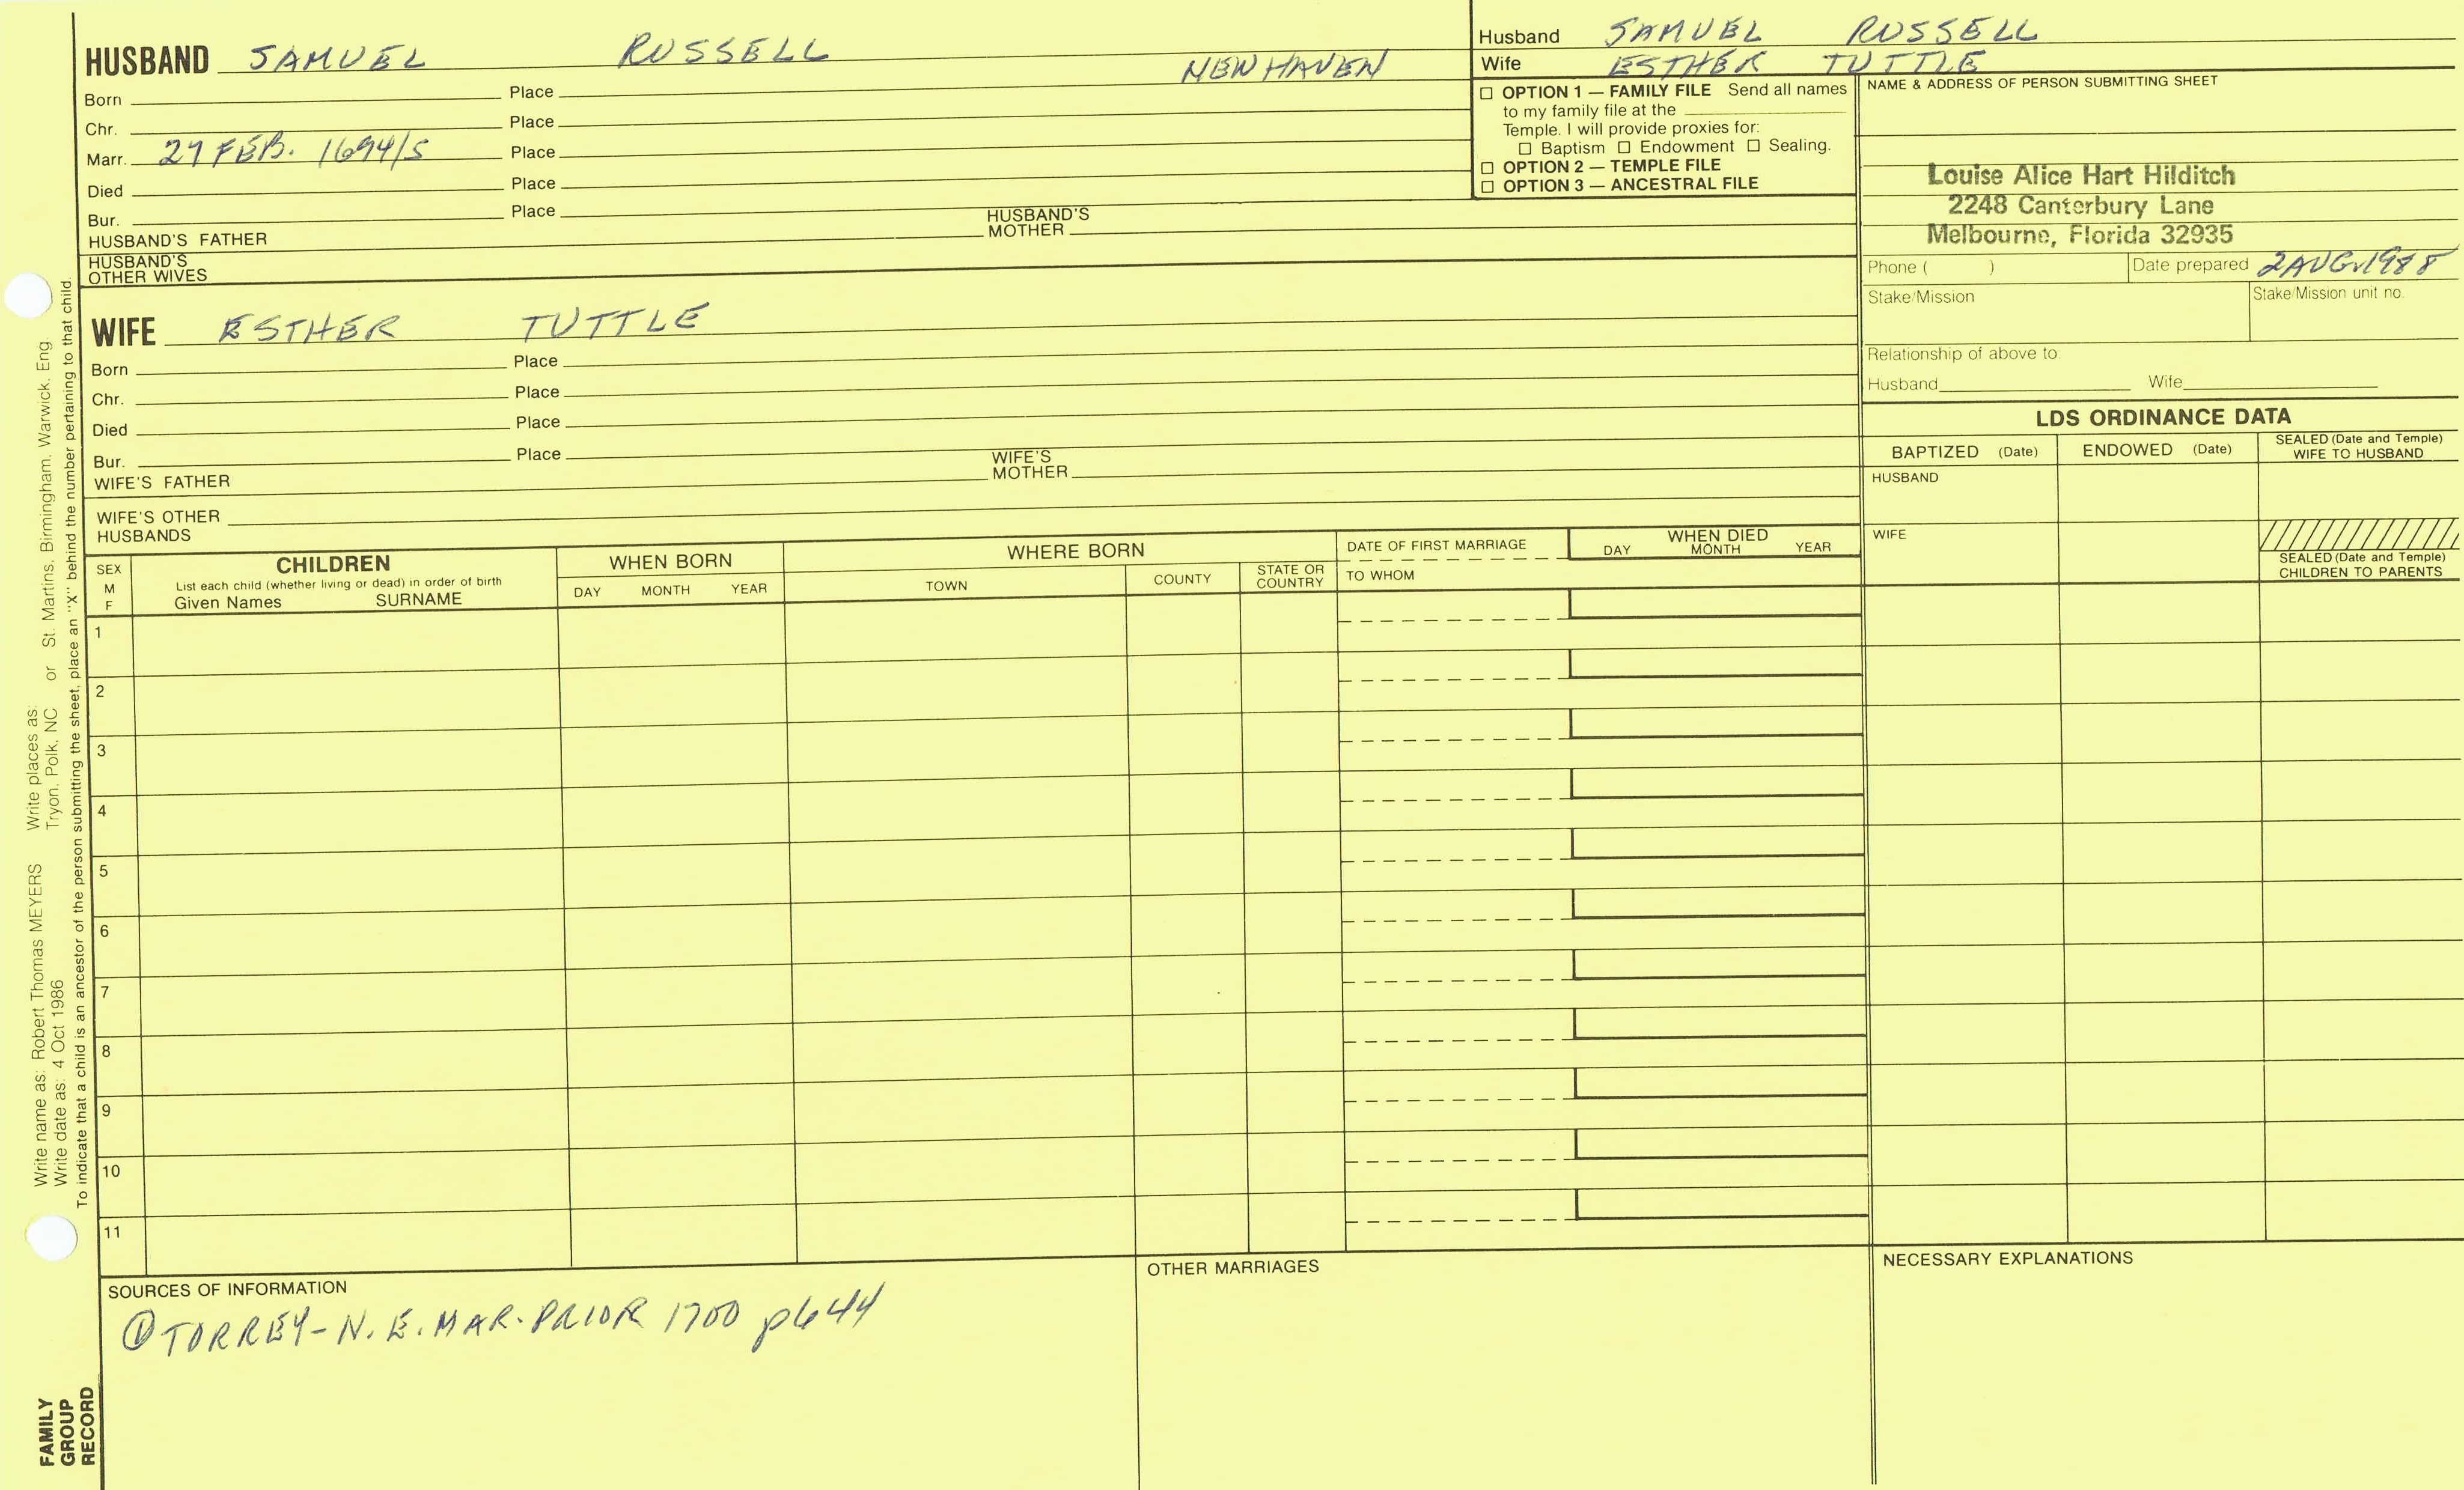 HUSBAND SAMUEL RUSSELL NEW HAVEN
Born Place
Chr. Place
Marr. 27 FEB. 1694/5 Place
Died Place
Bur. Place
HUSBAND'S FATHER HUSBAND'S MOTHER
HUSBAND'S OTHER WIVES
WIFE ESTHER TUTTLE
Born Place
Chr. Place
Died Place
Bur. Place
WIFE'S FATHER WIFE'S MOTHER
WIFE'S OTHER HUSBANDS
Husband SAMUEL RUSSELL
Wife ESTHER TUTTLE
☐ OPTION 1 — FAMILY FILE Send all names
to my family file at the
Temple. I will provide proxies for:
☐ Baptism ☐ Endowment ☐ Sealing.
☐ OPTION 2 — TEMPLE FILE
☐ OPTION 3 — ANCESTRAL FILE
NAME & ADDRESS OF PERSON SUBMITTING SHEET
Louise Alice Hart Hilditch
2248 Canterbury Lane
Melbourne, Florida 32935
Phone ( ) Date prepared 2 AUG. 1988
Stake/Mission Stake/Mission unit no.
Relationship of above to:
Husband Wife
LDS ORDINANCE DATA
BAPTIZED (Date) ENDOWED (Date) SEALED (Date and Temple) WIFE TO HUSBAND
HUSBAND
WIFE
SEALED (Date and Temple)
CHILDREN TO PARENTS
SEX M F
CHILDREN
List each child (whether living or dead) in order of birth
Given Names SURNAME
WHEN BORN
DAY MONTH YEAR
WHERE BORN
TOWN COUNTY STATE OR COUNTRY
DATE OF FIRST MARRIAGE
TO WHOM
WHEN DIED
DAY MONTH YEAR
1
2
3
4
5
6
7
8
9
10
11
SOURCES OF INFORMATION
① TORREY - N. E. MAR. PRIOR 1700 p644
OTHER MARRIAGES
NECESSARY EXPLANATIONS
Write name as: Robert Thomas MEYERS Write places as:
Write date as: 4 Oct 1986 Tryon, Polk, NC or St. Martins, Birmingham, Warwick, Eng.
To indicate that a child is an ancestor of the person submitting the sheet, place an "X" behind the number pertaining to that child.
FAMILY
GROUP
RECORD